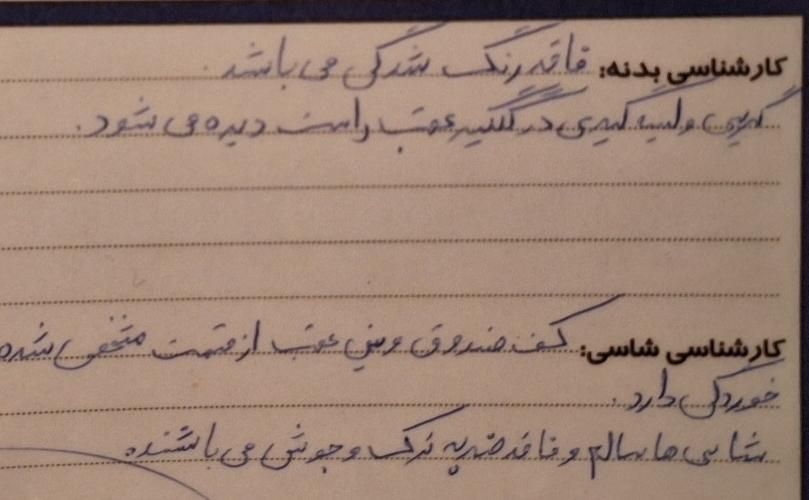 کارشناسی بدنه: فاقد رنگ شدگی می باشد.
گریس و لیسه گیری در گلگیر عقب راست دیده می شود.
کارشناسی شاسی: کف صندوق و سینی عقب از قسمت مشخص شده
خوردگی دارد.
شاسی ها سالم و فاقد ضربه ترک و جوش می باشند.